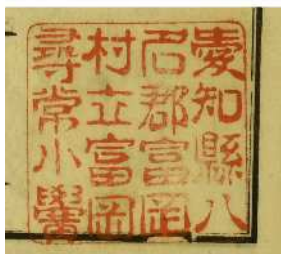 愛知縣八
名郡富岡
村立富岡
尋常小學黌